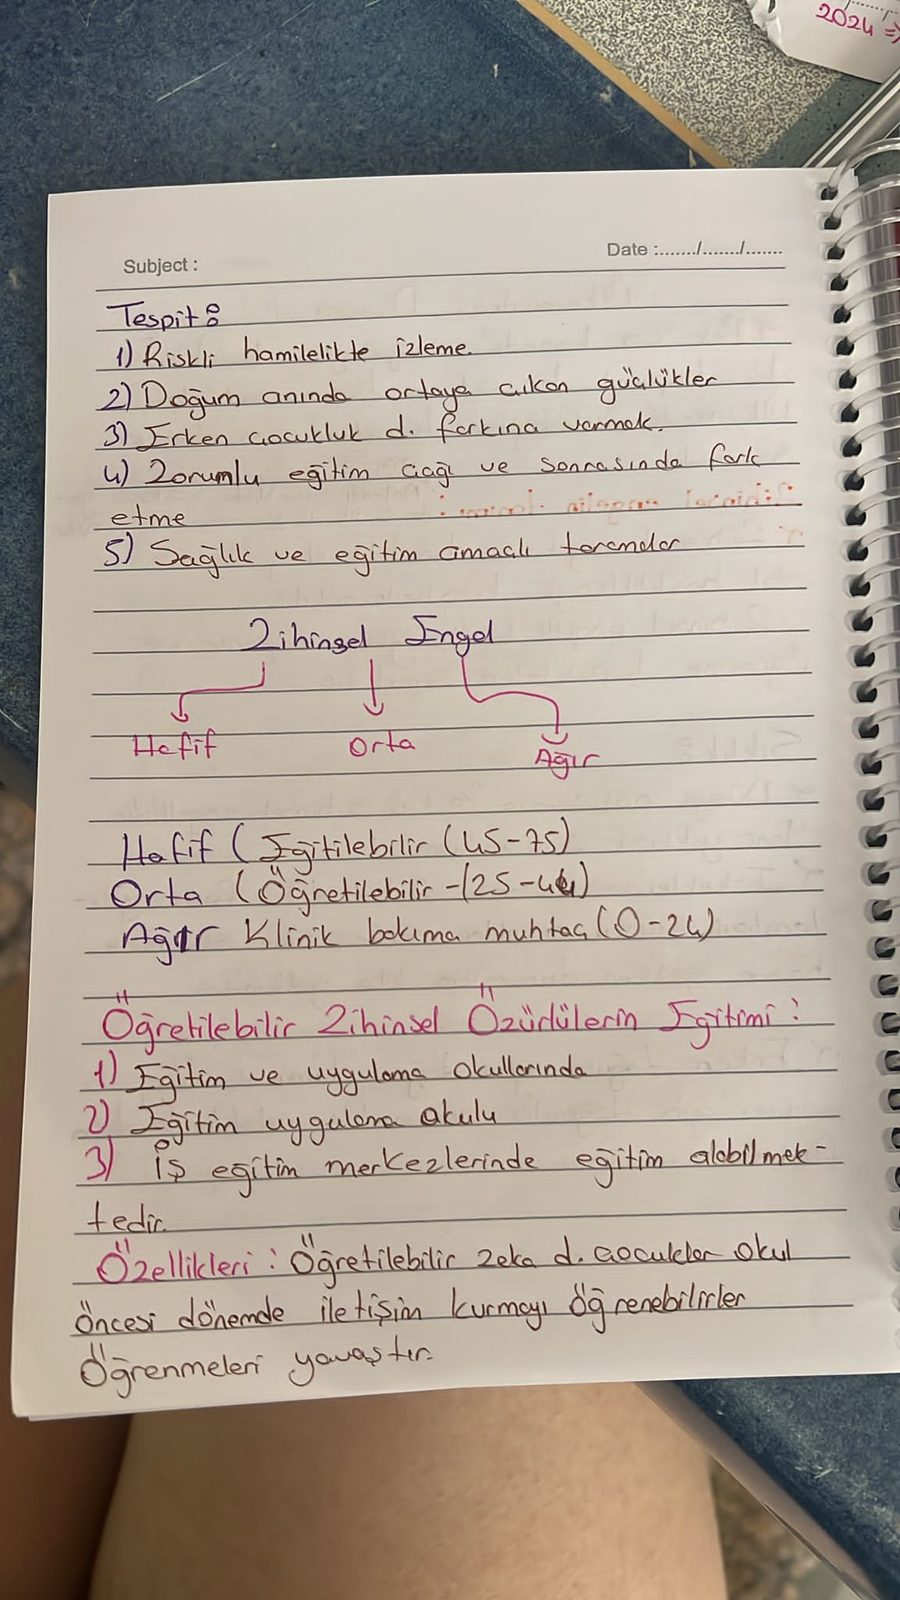 2024 =>
Subject :
Date :......./......./.......
Tespit :
1) Riskli hamilelikte izleme.
2) Doğum anında ortaya çıkan güçlükler
3) Erken çocukluk d. farkına varmak.
4) Zorunlu eğitim çağı ve sonrasında fark
etme
5) Sağlık ve eğitim amaçlı taramalar
Zihinsel Engel
Hafif
Orta
Ağır
Hafif ( Eğitilebilir (45-75)
Orta (Öğretilebilir -(25-44)
Ağır Klinik bakıma muhtaç (0-24)
Öğretilebilir Zihinsel Özürlülerin Eğitimi :
1) Eğitim ve uygulama okullarında
2) Eğitim uygulama okulu
3) İş eğitim merkezlerinde eğitim alabilmek-
tedir.
Özellikleri : Öğretilebilir zeka d. çocuklar okul
öncesi dönemde iletişim kurmayı öğrenebilirler
Öğrenmeleri yavaştır.